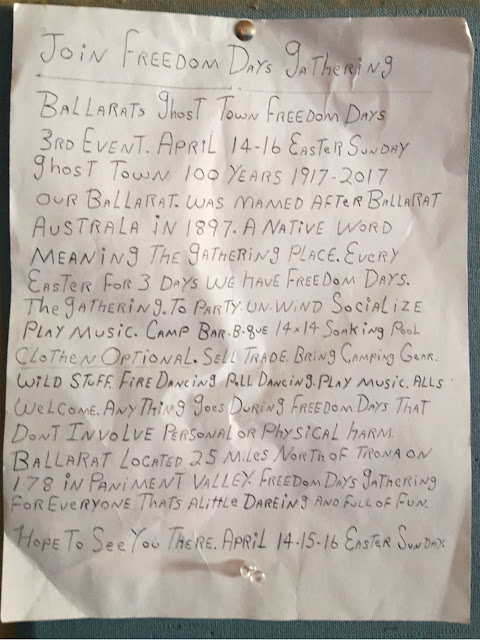 Join Freedom Days Gathering
Ballarats Ghost Town Freedom Days
3rd Event. April 14-16 Easter Sunday
Ghost Town 100 Years 1917-2017
Our Ballarat. was mamed after Ballarat
Australa in 1897. A Native Word
Meaning The Gathering Place. Every
Easter for 3 Days we have Freedom Days.
The Gathering. To Party. Un-wind Socialize
Play Music. Camp Bar-B-que 14x14 Soaking Pool
Clothen Optional. Sell Trade. Bring Camping Gear.
Wild Stuff. Fire Dancing Poll Dancing. Play Music. Alls
Welcome. Any Thing Goes During Freedom Days That
Dont Involve Personal or Physical Harm.
Ballarat Located 25 Miles North of Trona on
178 in Paniment Valley. Freedom Days Gathering
For Everyone Thats Alittle Dareing and Full of Fun.
Hope To See You There. April 14-15-16 Easter Sunday.